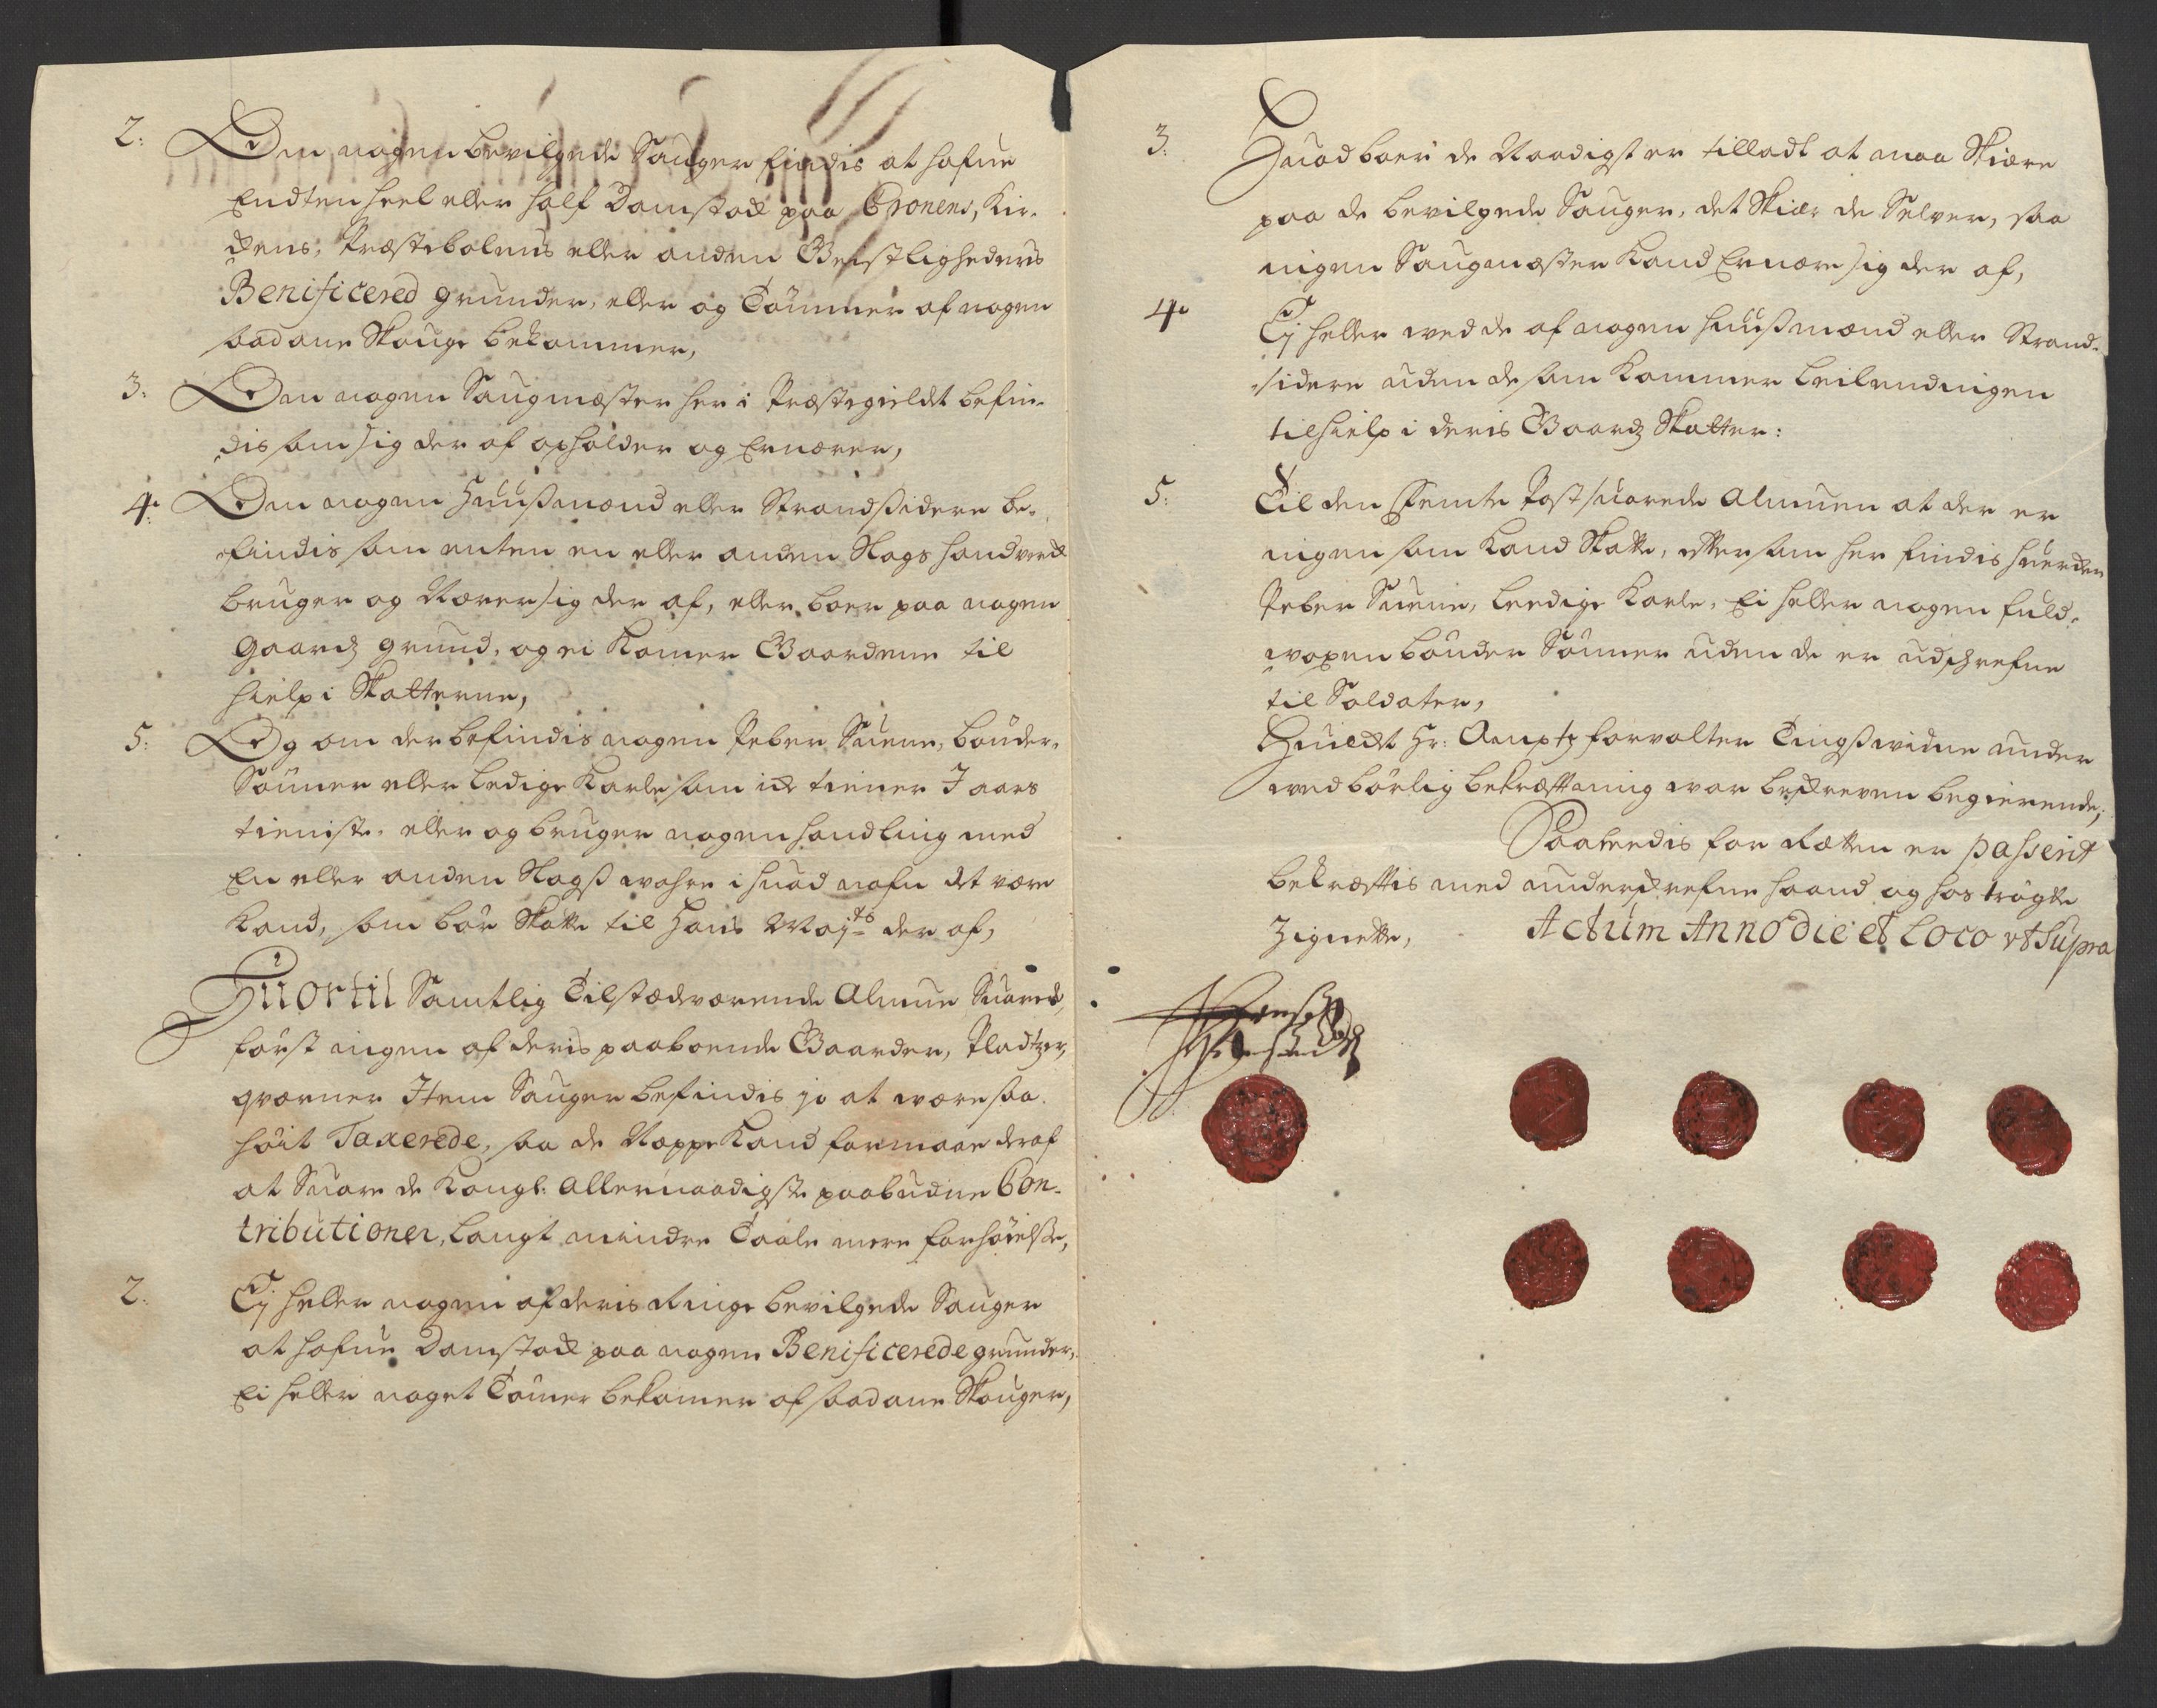 2: Om nogen bevilgede Sauger findis at hafue
Endten heel eller half Damstock paa Cronens, Kir-
ckens, Præstebolens eller anden Geistlighedens
Benificered grunder, eller og Tømmer af nogen
saadane Skouge bekommer,
3: Om nogen Saugmæster her i Præstegieldet befin-
dis som sig der af opholder og Ernærer,
4: Om nogen Huusmænd eller Strandsidere be-
findis som enten en eller anden Slags handverck
bruger og Nærer sig der af, eller boer paa nogen
Gaards grund, og ei komer Gaardene til
hielp i Skatterne,
5: Og om der befindis nogen Peber Suene, bønder-
Sønner eller ledige Karle som ick tiener J aars
tieniste, eller og bruger nogen handling med
En eller anden Slags wahre i huad nafn det være
kand, som bør Skatte til Hans Mayts der af,
Huortil Samtlig Tilstædværende Almue Suarede,
først ingen af deris paaboende Gaarder, Pladtzer,
qværner Item Sauger befindis jo at være saa
høit Taxerede, saa de Neppe kand formaae deraf
at Suare de Kongl: allernaadigste paabudne Con-
tributioner, langt mindre Taale mere forhøielse,
2. Ej heller nogen af deris Ringe bevilgede Sauger
at hafue Damstock paa nogen Benificerede grunder,
Ei heller noget Tømer bekomer af saadane Skouger,
3. Huad boer de Naadigst er tilladt at maa Skiære
paa de bevilgede Sauger, det Skiær de Selver, saa
ingen Saugmæster kand Ernære sig der af,
4. Ej heller ved de af nogen huusmænd eller Strand-
sidere uden de som kommer leilendingen
til hielp i deris Gaards Skatter:
5: Til den Femte Post suarede Almuen at der er
ingen som kand Skatte, efter som her findis huerken
Peber Suene, leedige Karle, Ei heller nogen fuld-
voxen bønder Sønner uden de er udschrefne
til Soldater,
Huilcket Hr: Amptz forvalter Tingsvidne under
vedbørlig bekræftning war beskreven begierende;
Saaledis for Retten er passerit
bekræftis med underskrefne haand og hos trøgte
Zignette, Actum Anno die et Loco ut Supra